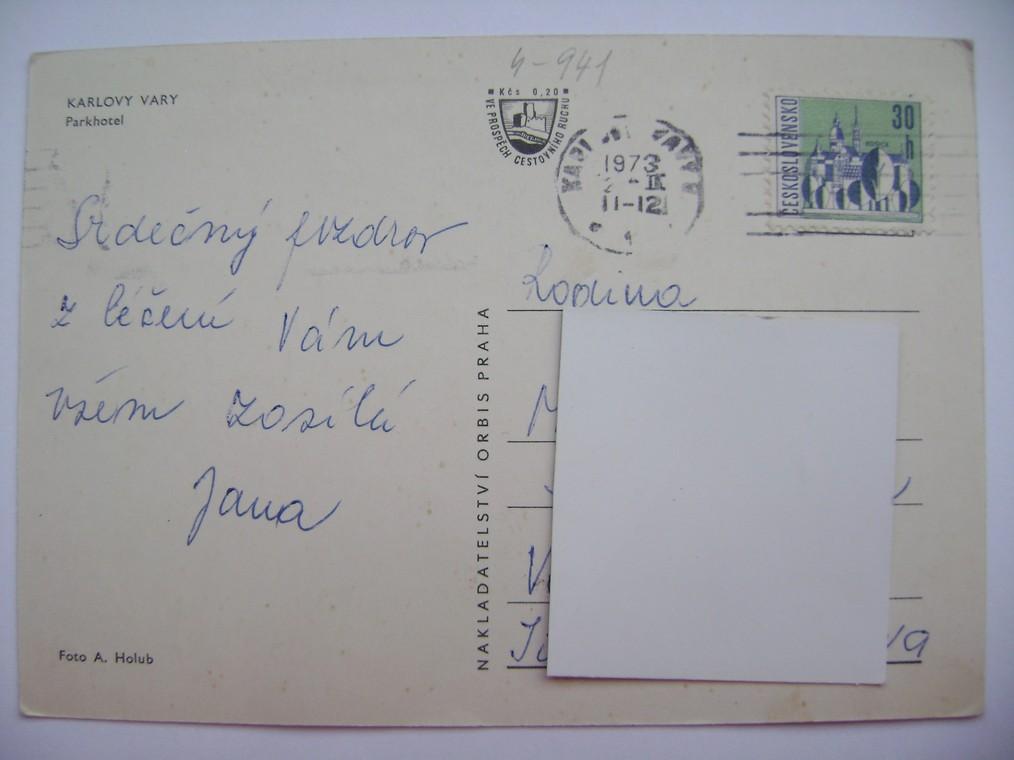 4-941
KARLOVY VARY
Parkhotel
Kčs 0,20
VE PROSPĚCH CESTOVNÍHO RUCHU
KARLOVY VARY
1973
11-12
ČESKOSLOVENSKO
30 h
Srdečný pozdrav
z léčení Vám
všem zasílá
Jana
Rodina
NAKLADATELSTVÍ ORBIS PRAHA
Foto A. Holub